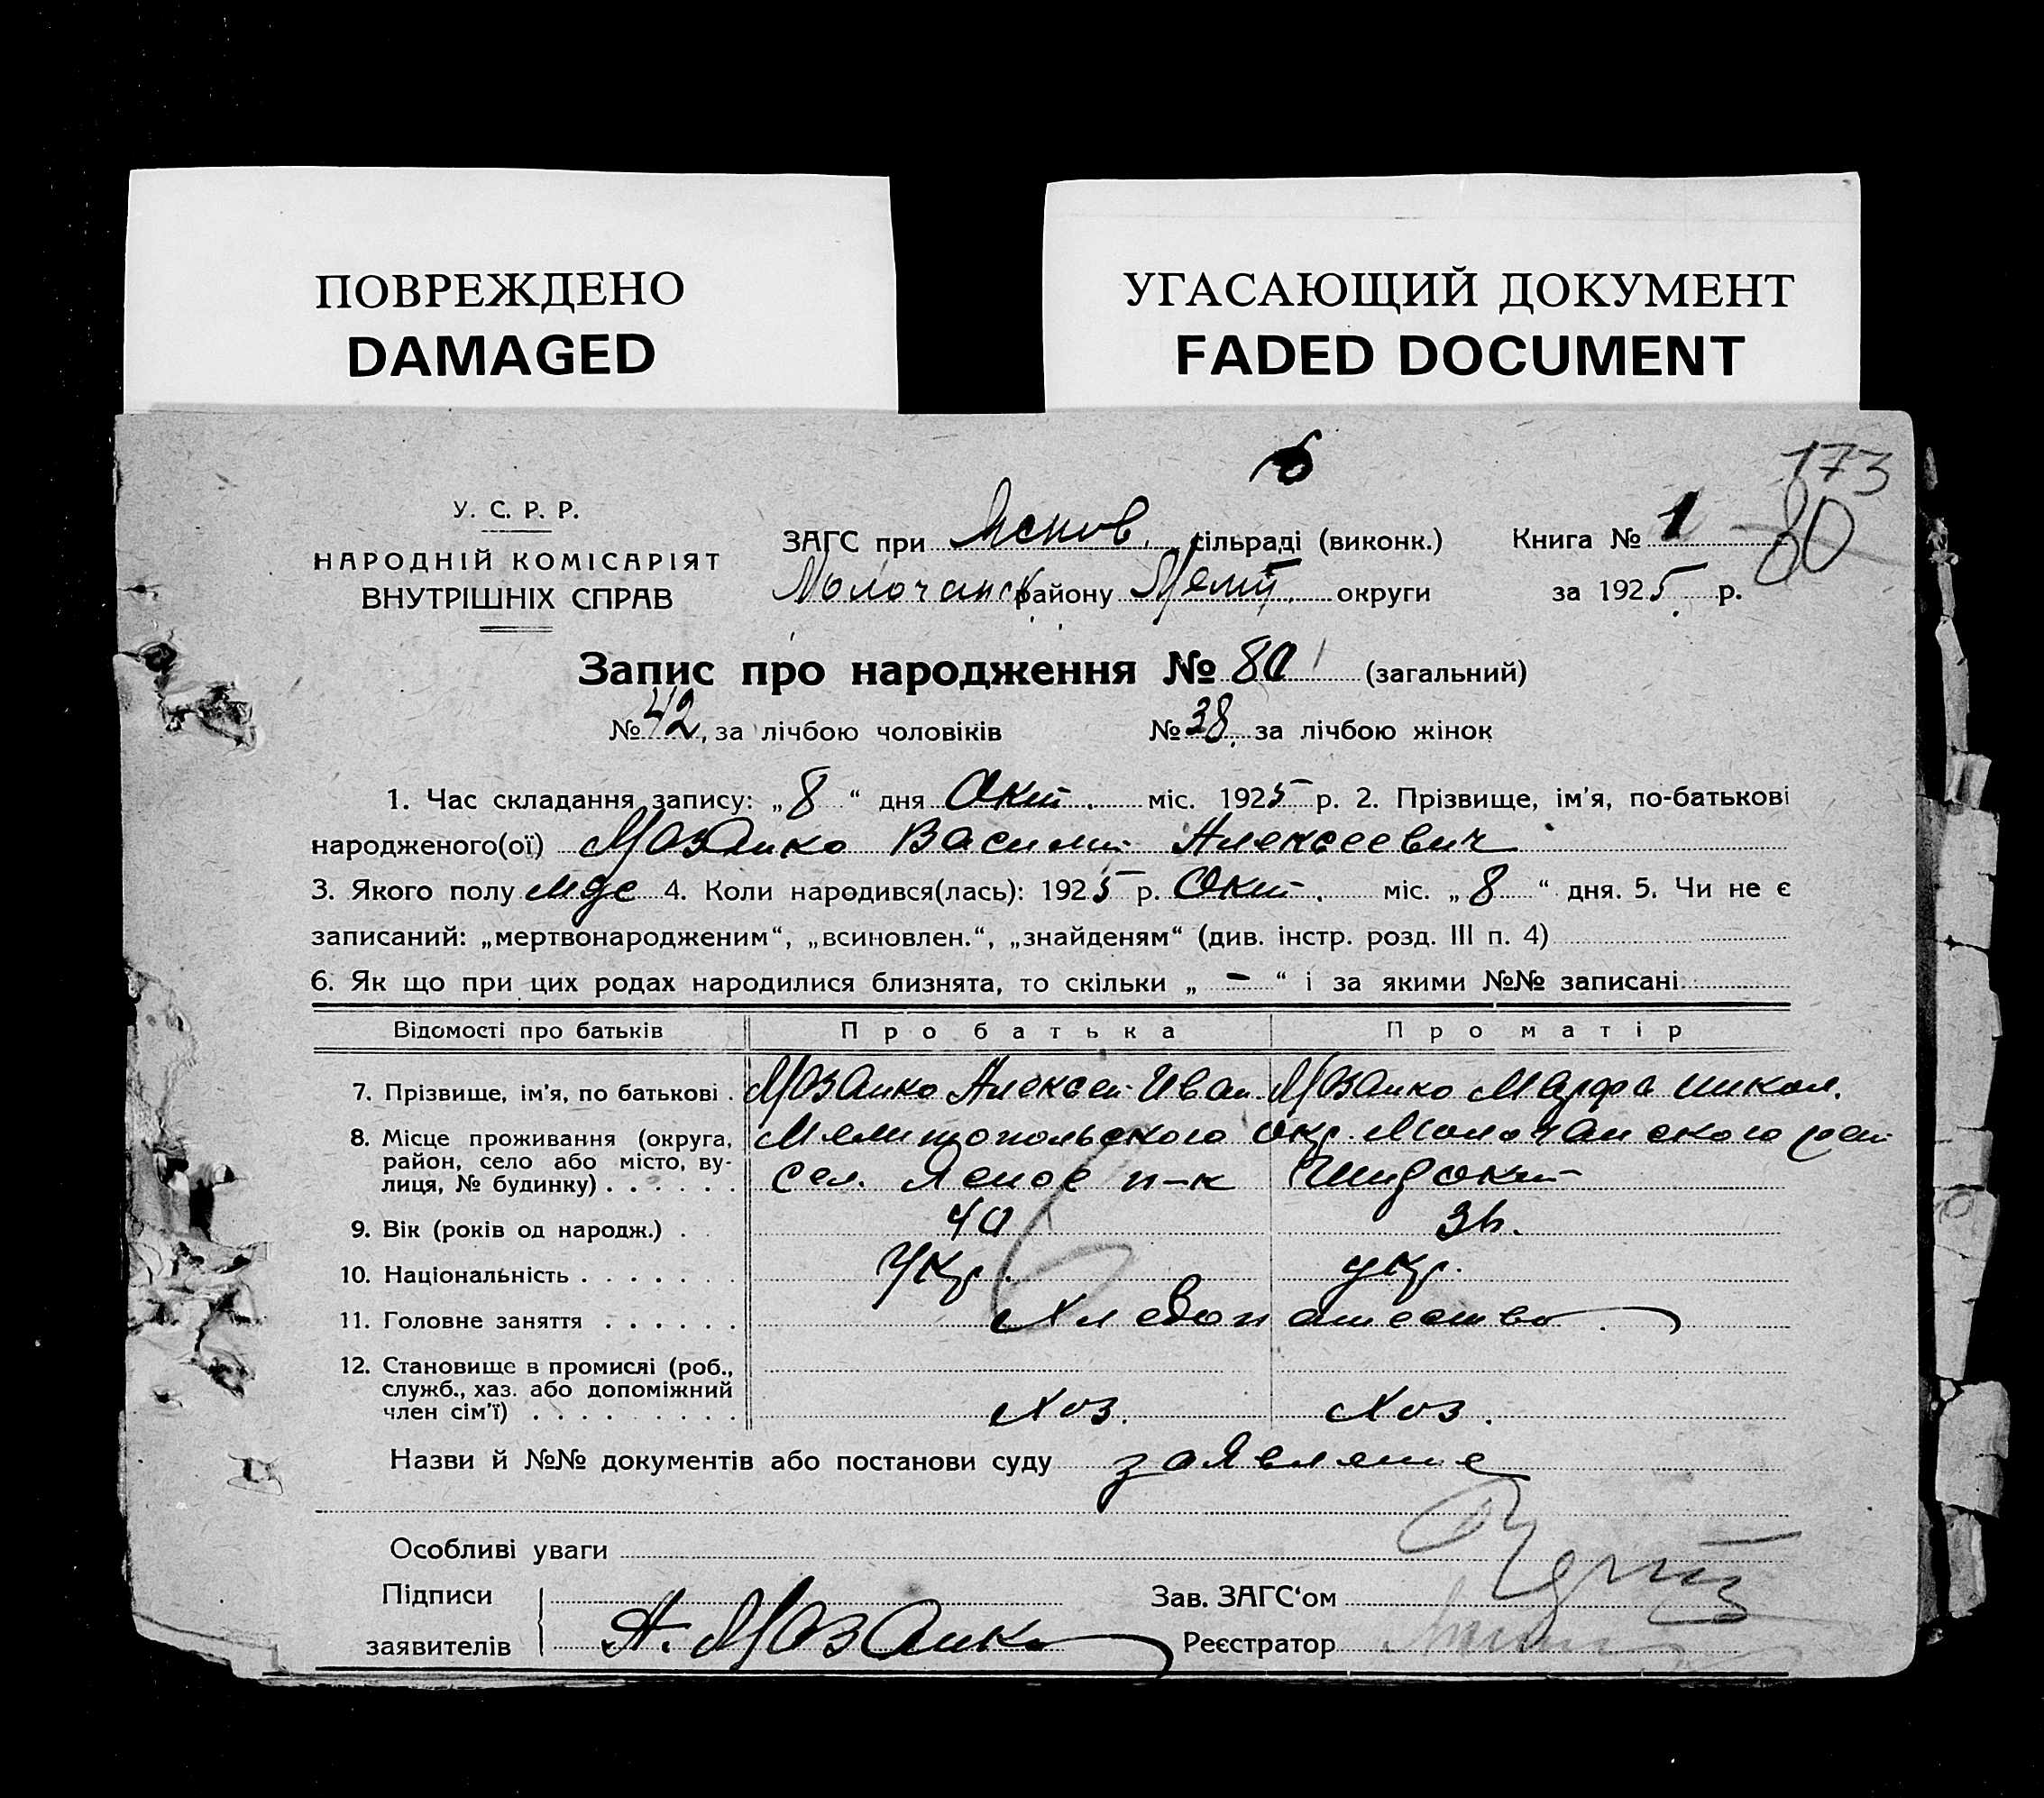 ПОВРЕЖДЕНО
DAMAGED
УГАСАЮЩИЙ ДОКУМЕНТ
FADED DOCUMENT
173
80
У. С. Р. Р.
НАРОДНІЙ КОМІСАРІЯТ
ВНУТРІШНІХ СПРАВ
ЗАГС при Яснов. сільраді (виконк.)
Молочанск району Мелит. округи
Книга № 1
за 1925 р.
Запис про народження № 80 (загальний)
№ 42, за лічбою чоловіків № 38. за лічбою жінок
1. Час складання запису: „8“ дня Окт. міс. 1925 р. 2. Прізвище, ім'я, по-батькові
народженого(ої) Мозалко Василий Алексеевич
3. Якого полу муж 4. Коли народився(лась): 1925 р. Окт. міс. „8“ дня. 5. Чи не є
записаний: „мертвонародженим“, „всиновлен.“, „знайденям“ (див. інстр. розд. III п. 4)
6. Як що при цих родах народилися близнята, то скільки „ - “ і за якими №№ записані
Відомості про батьків Про батька Про матір
7. Прізвище, ім'я, по батькові . Мозалко Алексей Иван. Мозалко Марфа Никол.
8. Місце проживання (округа, район, село або місто, вулиця, № будинку) . . . . . . Мелитопольского Окр. Молочанского рай
сел. Ясное п-к Широкий
9. Вік (років од народж.) . . 40 36.
10. Національність . . . . . . . Укр. укр.
11. Головне заняття . . . . . . Хлебопашество.
12. Становище в промислі (роб., служб., хаз. або допоміжний член сім'ї) . . . . . . . . . Хоз. Хоз.
Назви й №№ документів або постанови суду заявление
Особливі уваги
Підписи
заявителів А. Мозалко
Зав. ЗАГС'ом
Реєстратор